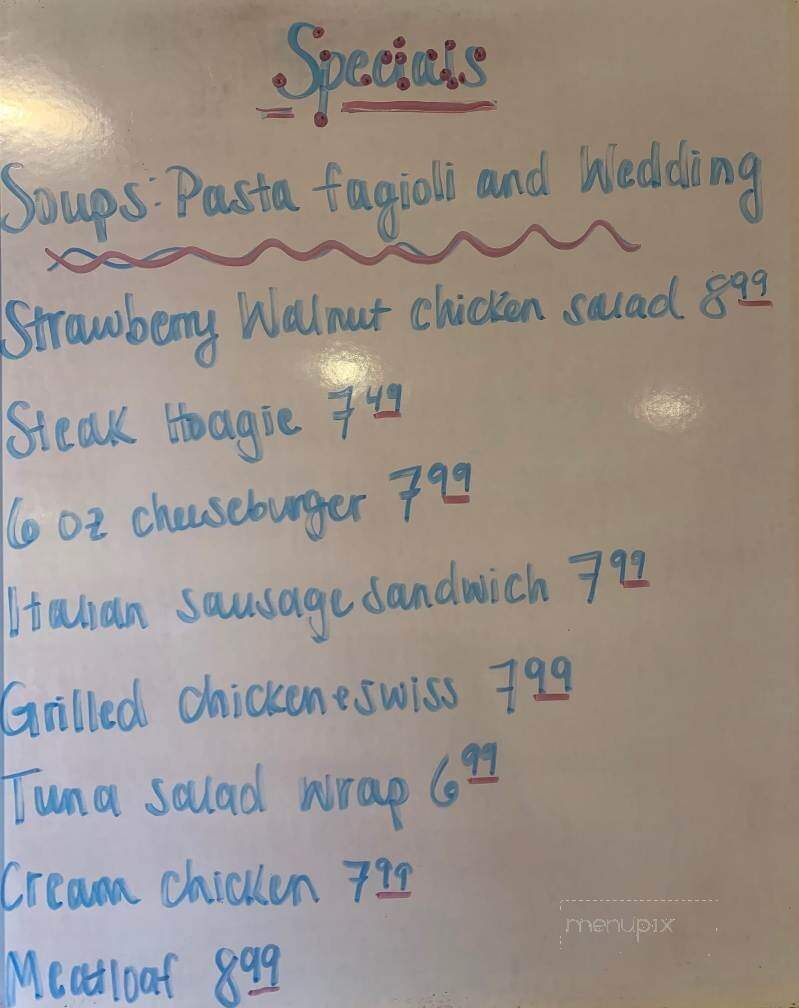 Specials
Soups: Pasta fagioli and Wedding
Strawberry Walnut chicken salad 8.99
Steak Hoagie 7.49
6 oz cheeseburger 7.99
Italian sausage sandwich 7.99
Grilled chicken + swiss 7.99
Tuna salad wrap 6.99
Cream chicken 7.99
Meatloaf 8.99
menupix